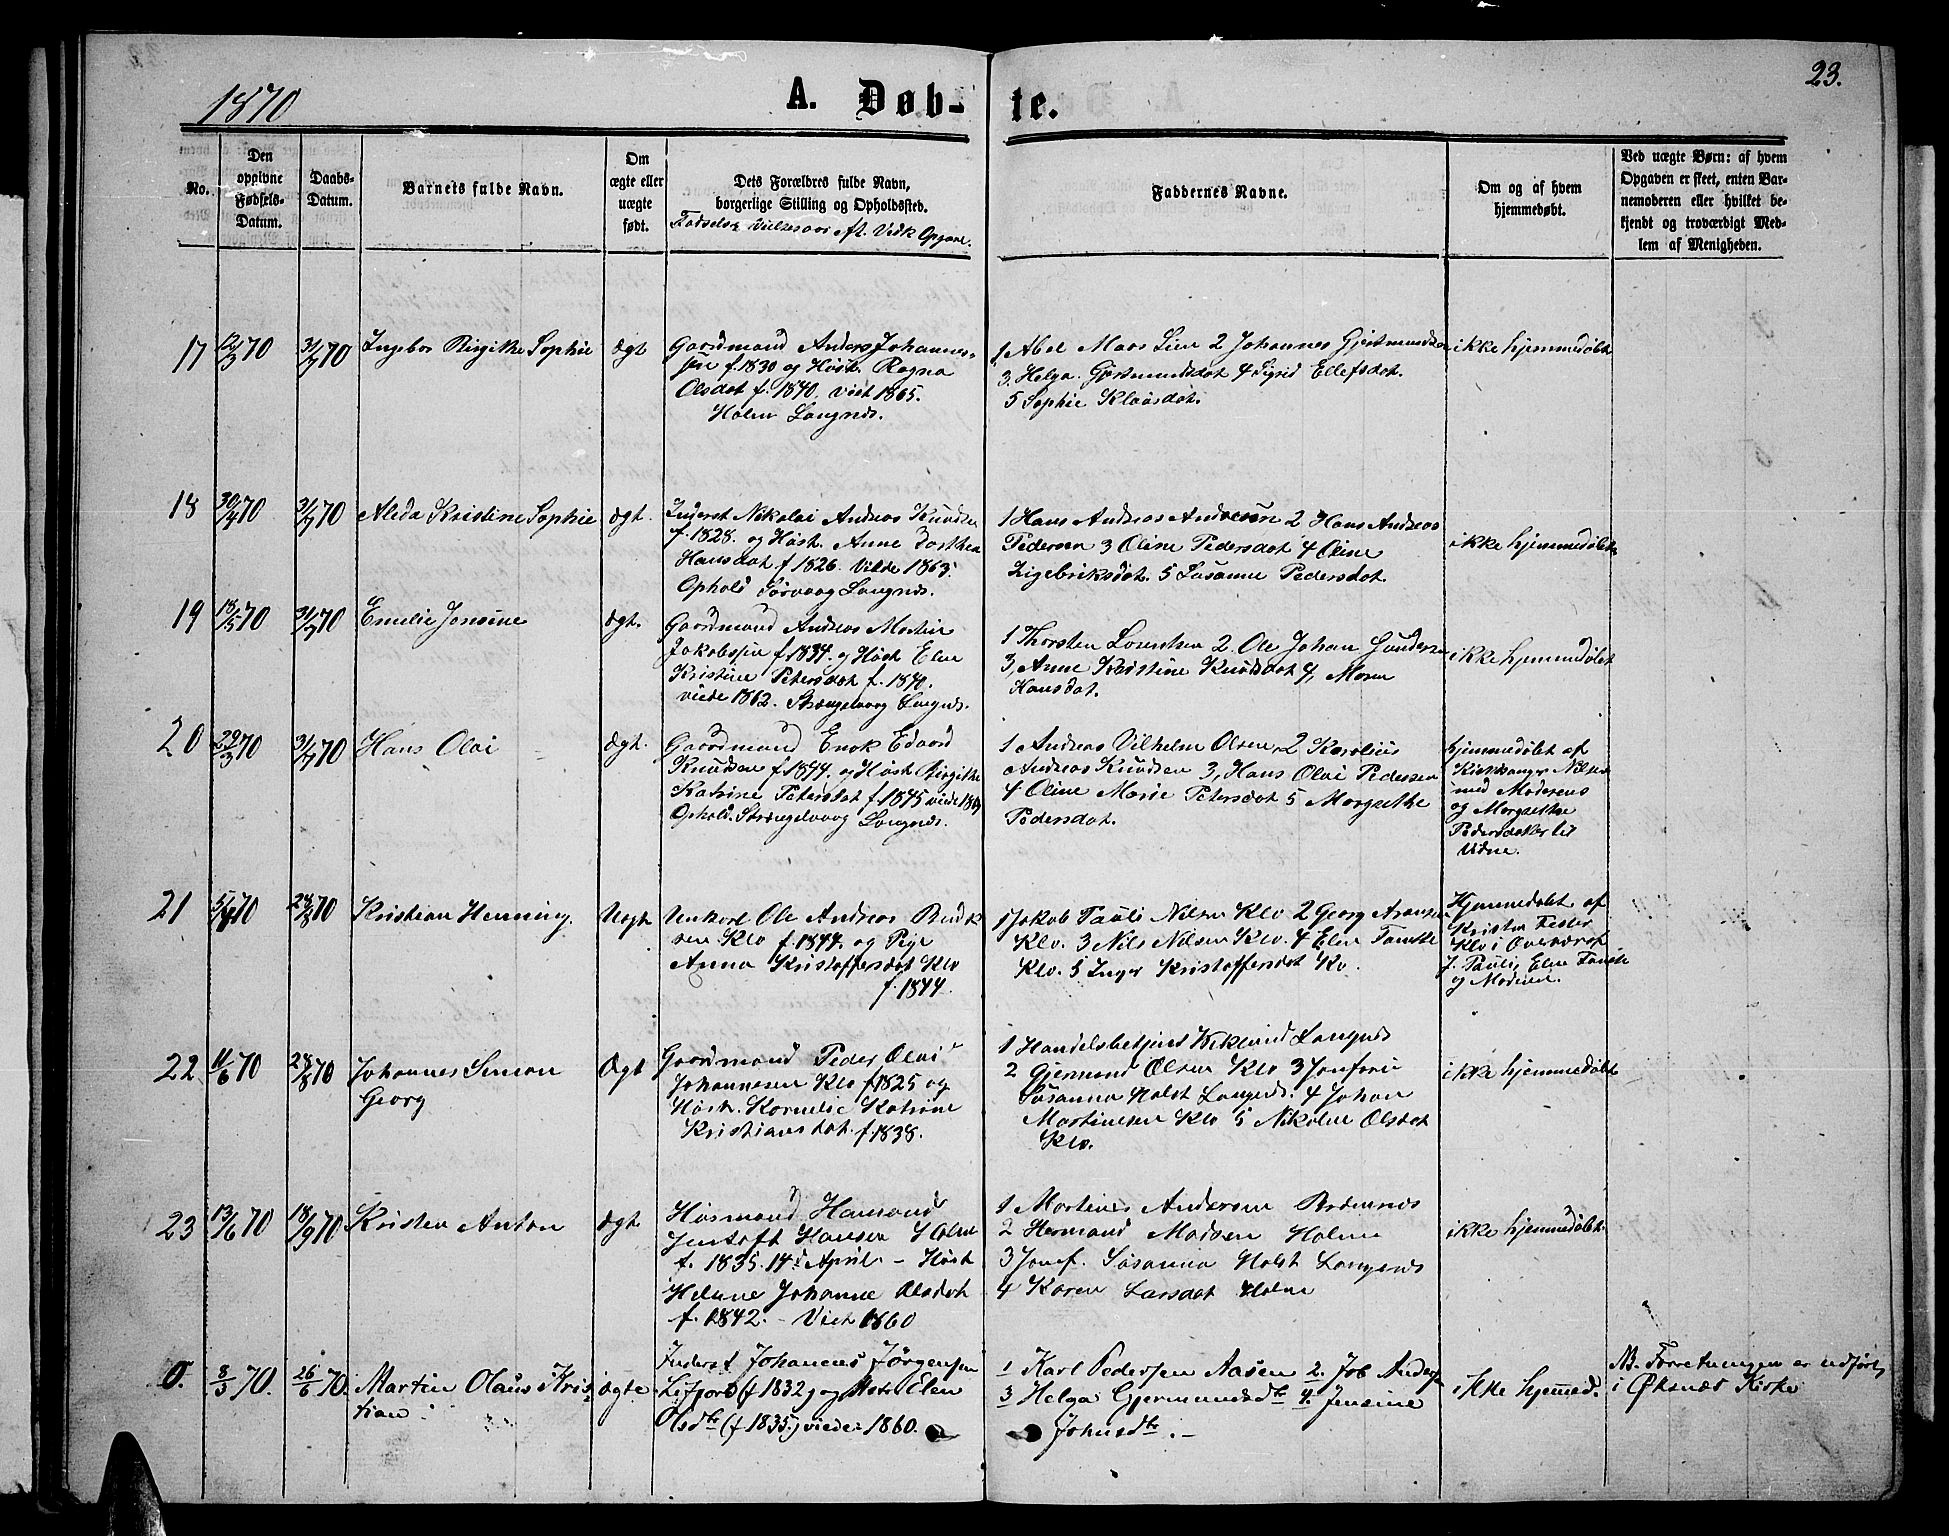 1870
A. Døb-
te.
23.
No.
Den
opgivne
Fødsels-
Datum.
Daabs-
Datum.
Barnets fulde Navn.
Om
ægte eller
uægte
født.
Dets Forældres fulde Navn,
borgerlige Stilling og Opholdssted.
Faddernes Navne.
Om og af hvem
hjemmedøbt.
Ved uægte Børn: af hvem
Opgaven er skeet, enten Bar-
nemoderen eller hvilket be-
kjendt og troværdigt Med-
lem af Menigheden.
17
12/3 70
31/7 70
Ingebor Birgithe Sophie
Ægt
Gaardmand Anders Johannes-
sen f. 1830 og Hust. Ragna
Olsdat f. 1840. viet 1865.
Holm Langnes.
1 Abel Maas Lien 2 Johannes Gjertmundsen
3. Helga Gjertmundsdat 4 Sigrid Ellefsdat.
5 Sophie Klausdat.
ikke hjemmedøbt
18
30/4 70
31/7 70
Aleda Kristine Sophie
Ægt.
Inderst Nikolai Andreas Knudsen
f. 1828. og Hust. Anne Dorthea
Hansdat f 1826. Viede 1863.
Ophold Sørvaag Langnes.
1 Hans Andreas Andresen 2 Hans Andreas
Pedersen 3 Oline Pedersdat 4 Oline
5 Susanne Pedersdat.
ikke hjemmedøbt
19
18/5 70
31/7 70
Emilie Jensine
Ægt.
Gaardmand Andreas Martin
Jakobssen f 1834. og Hust Elen
Kristine Petersdat f. 1840.
viede 1862. Strengelvaag Langnes.
1 Thorsten Lorentsen 2. Ole Johan Gundersen
3, Anne Kristine Knudsdat 4, Maren
Hansdat.
ikke hjemmedøbt
20
29/3 70
31/7 70
Hans Olai
Ægt.
Gaardmand Enok Edvard
Knudsen f. 1844. og Hust Birgithe
Katrine Petersdat f. 1845 viede 1869
Ophold. Strengelvaag Langnes.
1 Andreas Vilhelm Olsen 2 Karolius
Andreas Knudsen 3, Hans Olai Pedersen
4 Oline Marie Petersdat 5 Margrethe
Pedersdat.
hjemmedøbt af
Kirksanger Nilsen
med Moderens
og Margrethe
Pedersdatter til
Vidne.
21
5/4 70
28/8 70
Kristian Henning.
Uægt
Unkarl Ole Andreas Bendik
sen Klo f. 1844. og Pige
Anna Kristoffersdat Klo
f. 1844.
1 Jakob Pauli Nilsen Klo 2 Georg Aronsen
Klo. 3 Nils Nilsen Klo. 4 Elen Tomette
Klo. 5 Inger Kristoffersdat Klo.
Hjemmedøbt af
Kristen
Klo i Overværef
f. Pauli, Elen
og Moderen.
22
11/6 70
28/8 70
Johannes Simon
Georg
Ægt
Gaardmand Peder Olai
Johannesen Klo f 1825 og
Hust. Kornelie Katrine
Kristiansdat. f. 1838.
1 Handelsbetjent Viklund Langnes
2 Gjermund Olsen Klo 3 Jomfrue
Susanna Holst Langnes. 4 Johan
Martinusen Klo 5 Nikoline Olsdat
Klo.
ikke hjemmedøbt
23
13/6 70
18/9 70
Kristen Anton
Ægt
Husmand Hemand
Jentoft Hansen Holm
f. 1835. 14de April - Hust
Helene Johanne Olsdat
f. 1842. - Viet 1860
1 Martines Andersen
2 Hermand Madsen Holm
3 Jomf. Susanna Holst Langenes
4 Karen Larsdat Holm
ikke hjemmedøbt.
0.
8/3 70.
26/6 70.
Martin Olaus Kris
tian
ægte
Inderst Johannes Jørgensen
Lifjord (f 1832) og Hstr. Elen
Olsdtr (f 1835.) viede: 1860.
1 Karl Pedersen Aasen 2. Job Anders
3 Helga Gjermundsdtr 4. Jensine
Johnsdtr. -
ikke hjemmed.
NB. Forretningen er udført
i Øksnæs Kirke